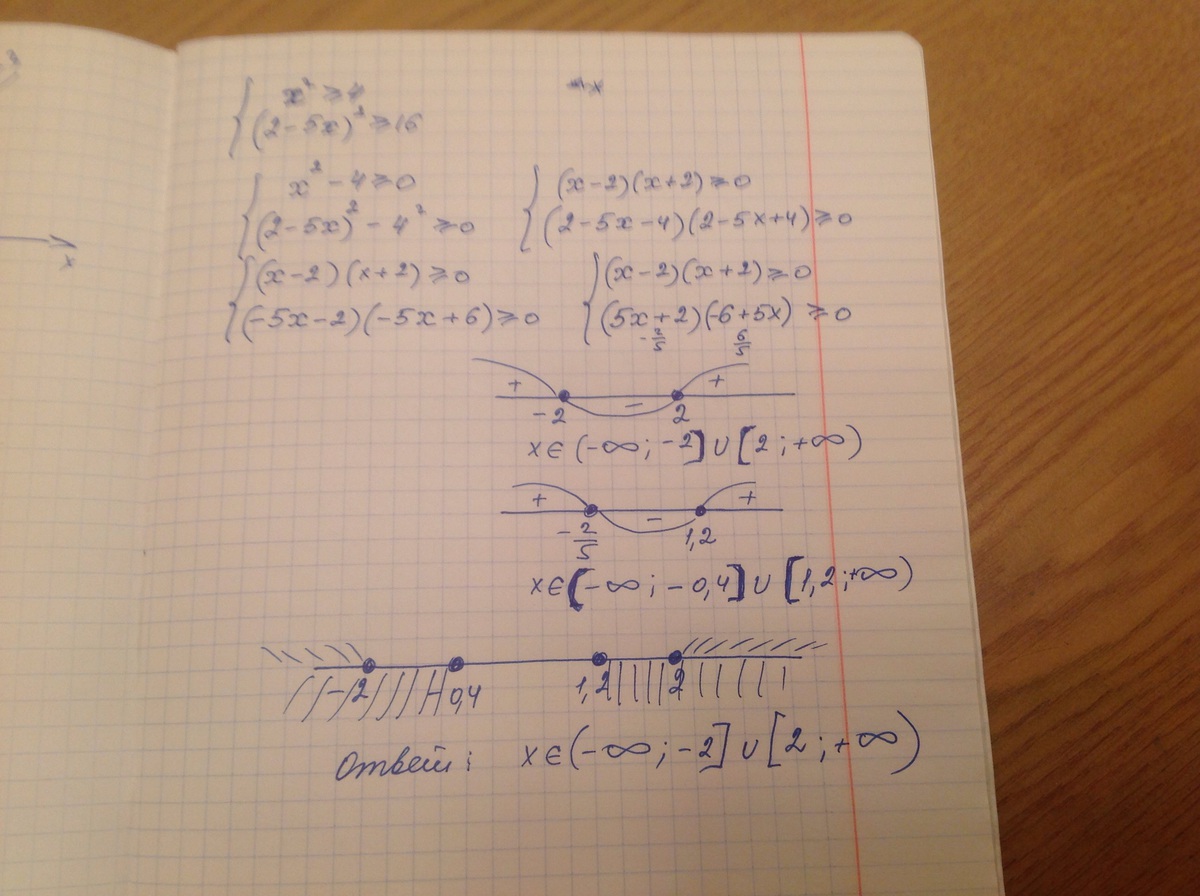 x
x² ≥ 4
(2-5x)² ≥ 16
x² - 4 ≥ 0
(2-5x)² - 4² ≥ 0
(x-2)(x+2) ≥ 0
(2-5x-4)(2-5x+4) ≥ 0
(x-2)(x+2) ≥ 0
(-5x-2)(-5x+6) ≥ 0
(x-2)(x+2) ≥ 0
(5x+2)(-6+5x) ≥ 0
-2/5 6/5
+ - +
-2 2
x∈(-∞; -2]∪[2; +∞)
+ - +
-2/5 1,2
x∈(-∞; -0,4]∪[1,2; +∞)
-2 -0,4 1,2 2
Ответ: x∈(-∞; -2]∪[2; +∞)